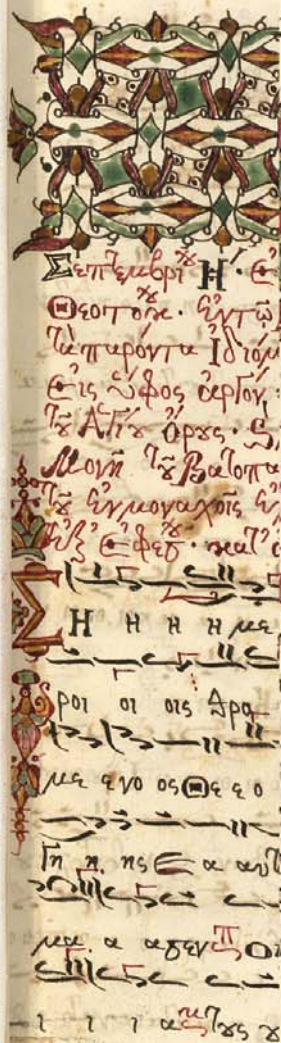 Σεπτεμβρίου Η΄. Ἐ
Θεοτόκου. ἐν τῷ
τὰ παρόντα Ἰδιόμ
Εἰς ὕφος ἀργὸν,
τοῦ Ἁγίου Ὄρους.
Μονῆ τοῦ Βατοπα
τοῦ ἐν μοναχοῖς
ἐξ Ἐφέσου. κατ᾽
Σ Η Η Η Η με
ροι οι οις θρο
με ενο ος Θε ε ο
Γη η ης Ε α αυτ
μα α α γεν
ι ι ι α τους